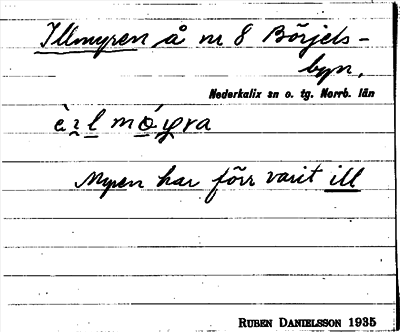 Illmyren å nr 8 Börjels-
byn,
Nederkalix sn o. tg. Norrb. län
Myren har förr varit ill
RUBEN DANIELSSON 1935